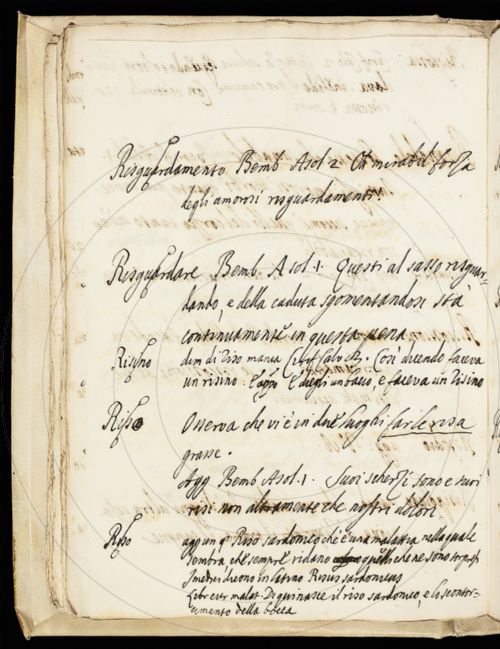 Risguardamento Bemb. Asol. 2. Oh mirabil forza
degli amorosi risguardamenti!
Risguardare Bemb. Asol. 1. Questi al sasso risguar-
dando, e della caduta sgomentandosi sta
continuamente in questa pena
Risino dim. di Riso manca. Così dicendo faceva
un risino: e un bacio, e faceva un risino
Riso Osserva che vi è in due luoghi far le risa
grasse.
Agg. Bemb. Asol. 1. Suoi scherzi sono e suoi
risi non altramente che nostri dolori
Riso agg. un § Riso sardonico che è una malattia nella quale
sembra che sempre ridano quelli che ne sono sorpresi
I medici dicono in latino Risus sardonicus
Libr. cur. malat. Di qui nasce il riso sardonico, e lo scontor-
cimento della bocca